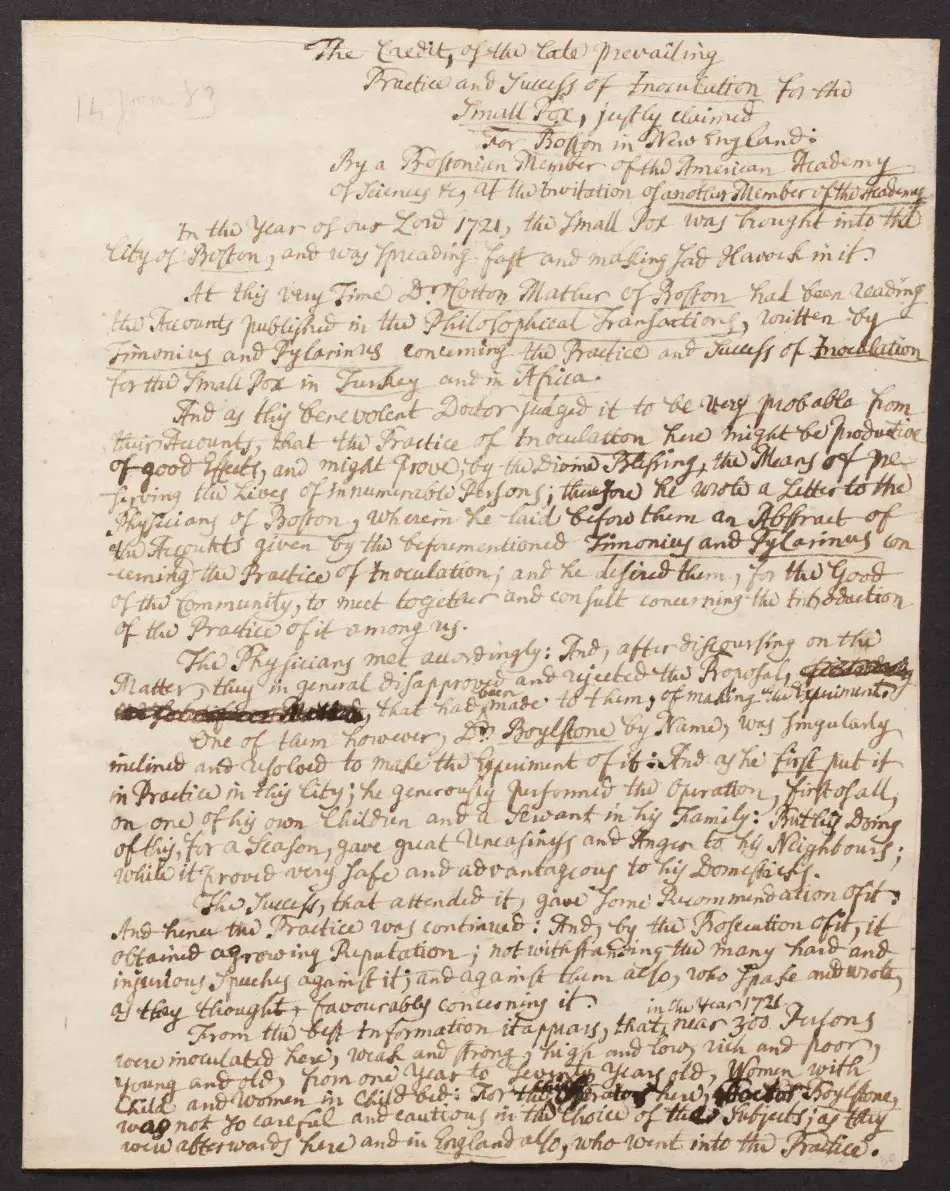 The Credit, of the late prevailing
Practice and Success of Inoculation for the
Small Pox, justly claimed
For Boston in New England:
By a Bostonian Member of the American Academy
of Sciences &c, at the Invitation of another Member of the Academy
In the Year of our Lord 1721, the Small Pox was brought into the
City of Boston, and was spreading fast and making sad Havock in it.
At this very Time Dr. Cotton Mather of Boston had been reading
the Accounts published in the Philosophical Transactions, written by
Timonius and Pylarinus concerning the Practice and Success of Inoculation
for the Small Pox in Turkey and in Africa.
And as this benevolent Doctor judged it to be very probable from
their Accounts, that the Practice of Inoculation here might be productive
of good Effects, and might prove, by the Divine Blessing, the Means of pre-
serving the Lives of innumerable Persons; therefore he wrote a Letter to the
Physicians of Boston, wherein he laid before them an Abstract of
the Accounts given by the beforementioned Timonius and Pylarinus con
cerning the Practice of Inoculation; and he desired them, for the Good
of the Community, to meet together and consult concerning the Introduction
of the Practice of it among us.
The Physicians met accordingly: And, after discoursing on the
Matter, they in general disapproved and rejected the Proposal,
that had been made to them, of making the Experiment.
One of them however, Dr. Boylstone by Name, was singularly
inclined and resolved to make the Experiment of it: And as he first put it
in Practice in this City; he generously performed the Operation, first of all,
on one of his own Children and a Servant in his Family: But his Doing
of this, for a Season, gave great Uneasiness and Anger to his Neighbours;
while it proved very safe and advantageous to his Domesticks.
The Success, that attended it, gave some Recommendation of it:
And hence the Practice was continued: And, by the Prosecution of it, it
obtained a growing Reputation; notwithstanding the many hard and
injurious Speeches against it; and against them also, who spake and wrote,
as they thought, favourably concerning it.
in the Year 1721
From the best Information it appears, that near 300 Persons
were inoculated here, weak and strong, high and low, rich and poor,
young and old, from one Year to Seventy Years old, Women with
Child and Women in Child bed: For the Operator here, Doctor Boylstone,
was not so careful and cautious in the Choice of the Subjects; as they
were afterwards here and in England also, who went into the Practice.